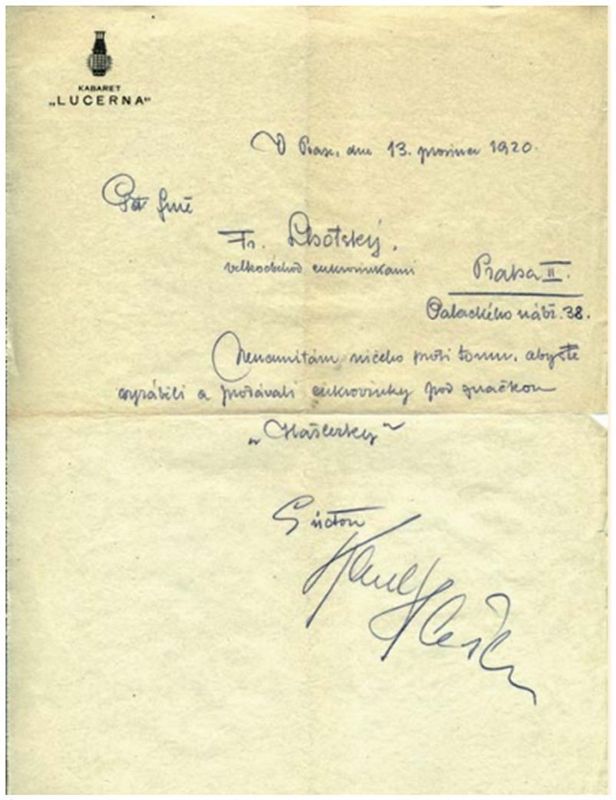 KABARET
„LUCERNA"
V Praze, dne 13. prosince 1920.
Ct. firmě
Fr. Lhotský,
velkoobchod cukrovinkami
Praha II.
Palackého nábř. 38.
Nenamítám ničeho proti tomu, abyste
vyráběli a prodávali cukrovinky pod značkou
„Hašlerky"
S úctou
Karel Hašler